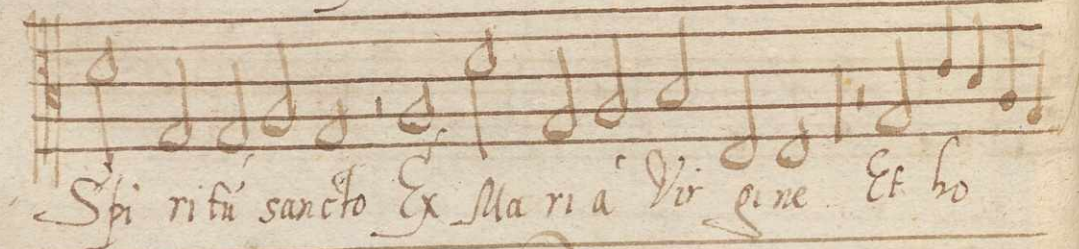 Spi ri tú sancto Ex Ma ri á Vir gi ne Et ho